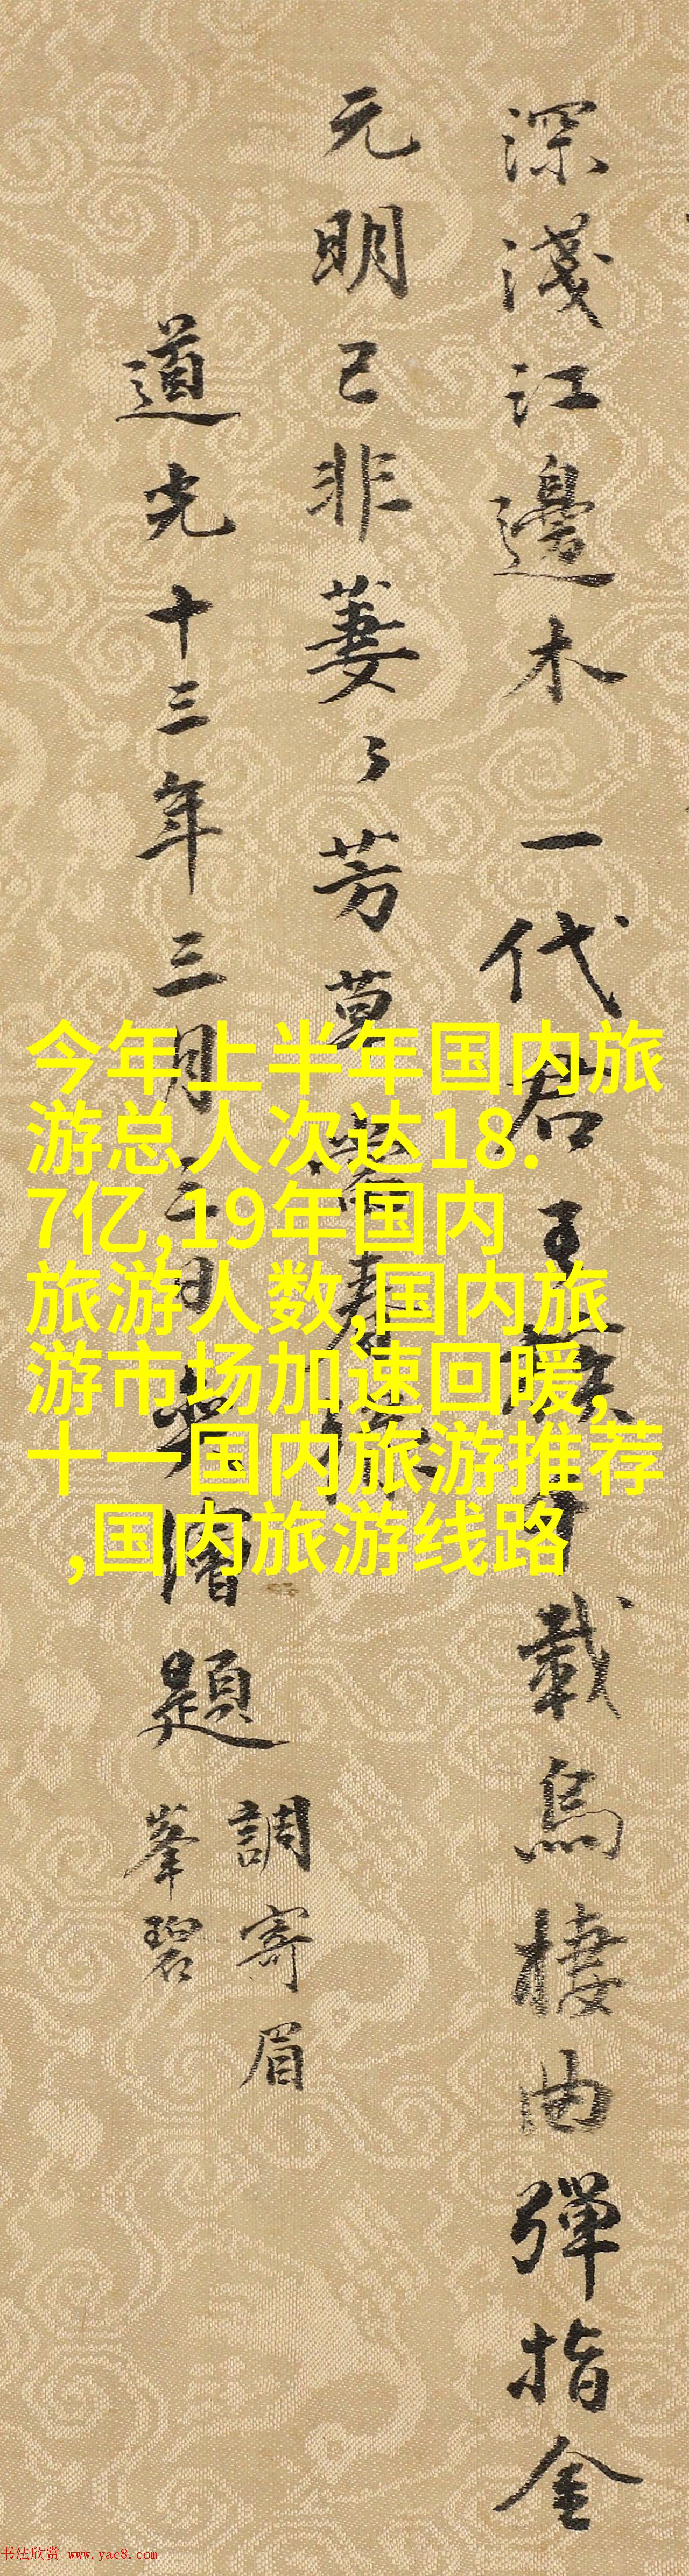 深淺江邊木 一代君王 載烏棲曲彈指金
元明已非萋〻芳草 春
道光十三年三月三日 層題
調寄眉
峯碧
今年上半年国内旅
游总人次达18.
7亿,19年国内
旅游人数,国内旅
游市场加速回暖,
十一国内旅游推荐
,国内旅游线路
书法欣赏 www.yac8.com